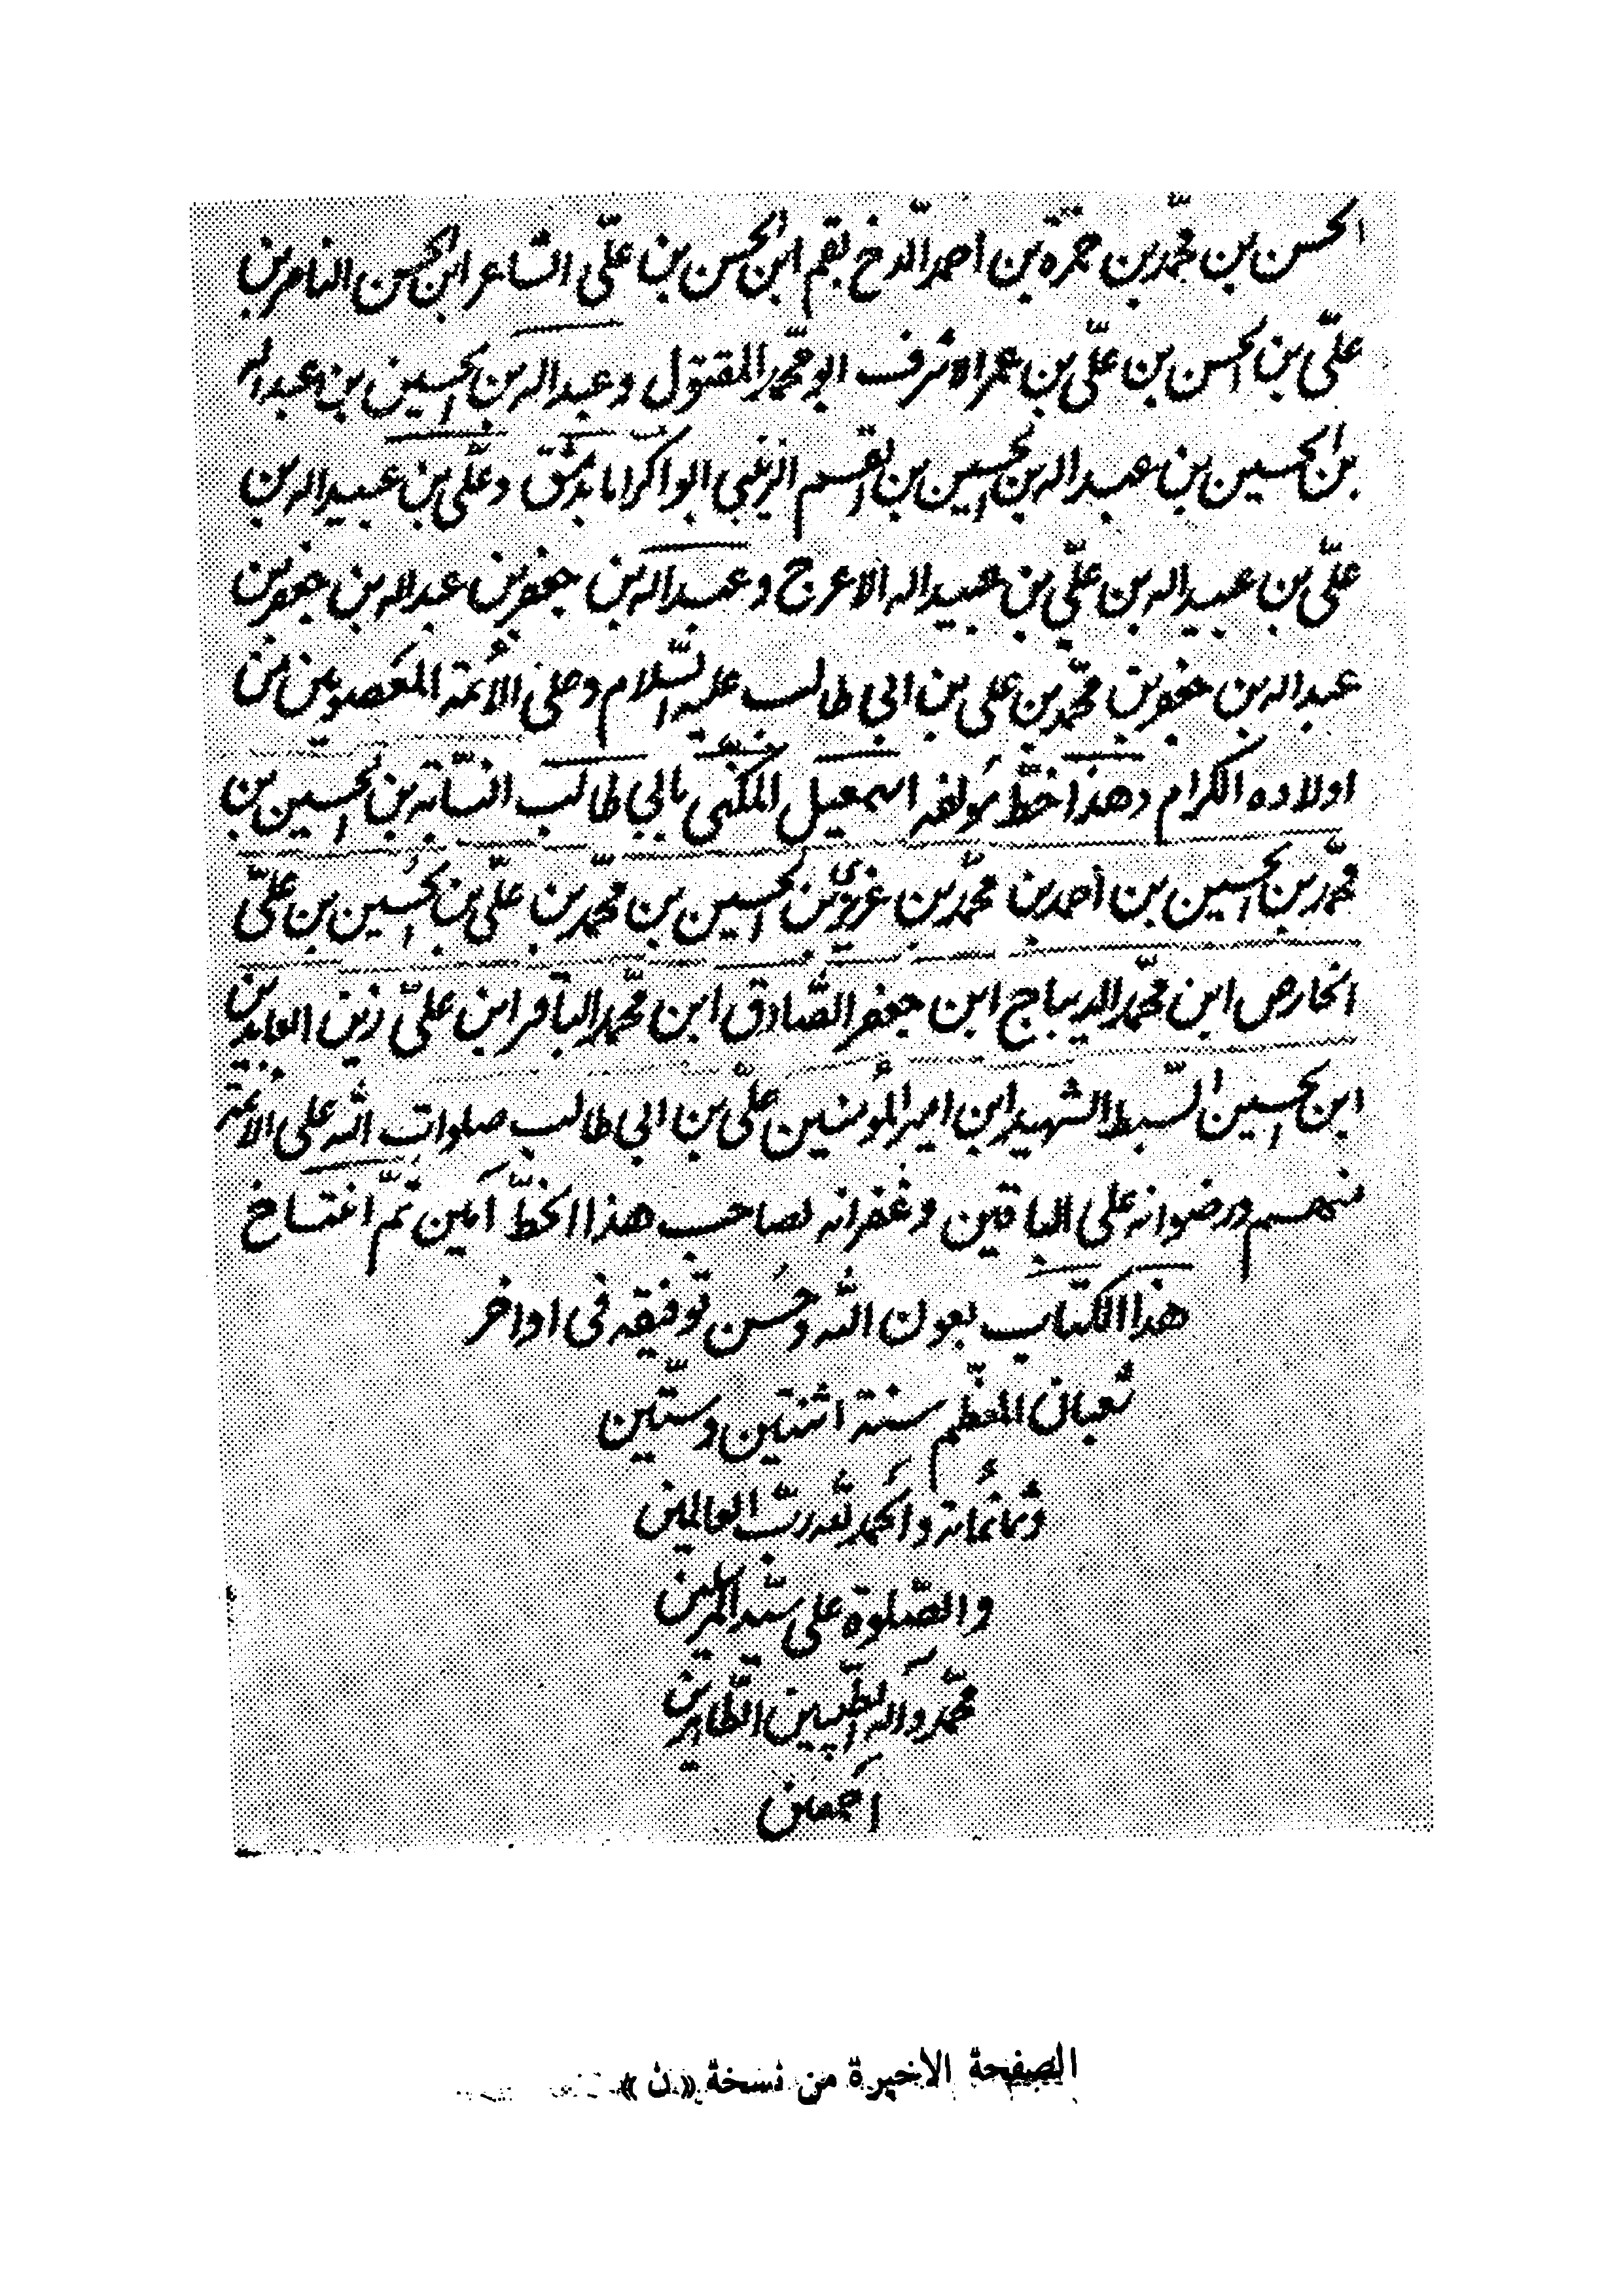 الحسن بن محمّد بن حمزة بن احمد الدّخ بقم ابن الحسن بن علىّ الشاعر ابن الحسن الناصر بن
علىّ بن الحسن بن علىّ بن عمر الاشرف ابو محمّد المقتول وعبد اله بن الحسين بن عبد اله
بن الحسين بن عبد اله بن الحسين بن القسم الرسّى ابو اكرابا بدمشق وعلّى بن عبيد اله بن
علىّ بن عبيد اله بن علىّ بن عبيد اله الاعرج وعبد اله بن جعفر بن عبد اله بن جعفر بن
عبد اله بن جعفر بن محمّد بن على بن ابى طالب عليه السّلام وعلى الائمة المعصومين من
اولاده الكرام وهذا خطّ مؤلفه اسمعيل المكنى بابى طالب النسّابة بن الحسين بن
محمّد بن الحسين بن احمد بن محمّد بن عزيزى بن الحسين بن محمّد بن علىّ بن الحسين بن علىّ
الخارص ابن محمّد الديباج ابن جعفر الصّادق ابن محمّد الباقر ابن علىّ زين العابدين
ابن الحسين السّبط الشهيد ابن امير المؤمنين علىّ بن ابى طالب صلوات الله على الائمّة
منهم ورضوانه على الباقين وغفرانه لصاحب هذا الخطّ آمين تمّ انتساخ
هذا الكتاب بعون الله وحسن توفيقه فى اواخر
شعبان المعظّم سنة اثنتين وستّين
وثمانمائة والحمد لله ربّ العالمين
والصّلوة على سيّد المرسلين
محمّد وآله الطيّبين الطّاهرين
اجمعين
الصفحة الأخيرة من نسخة «ن»